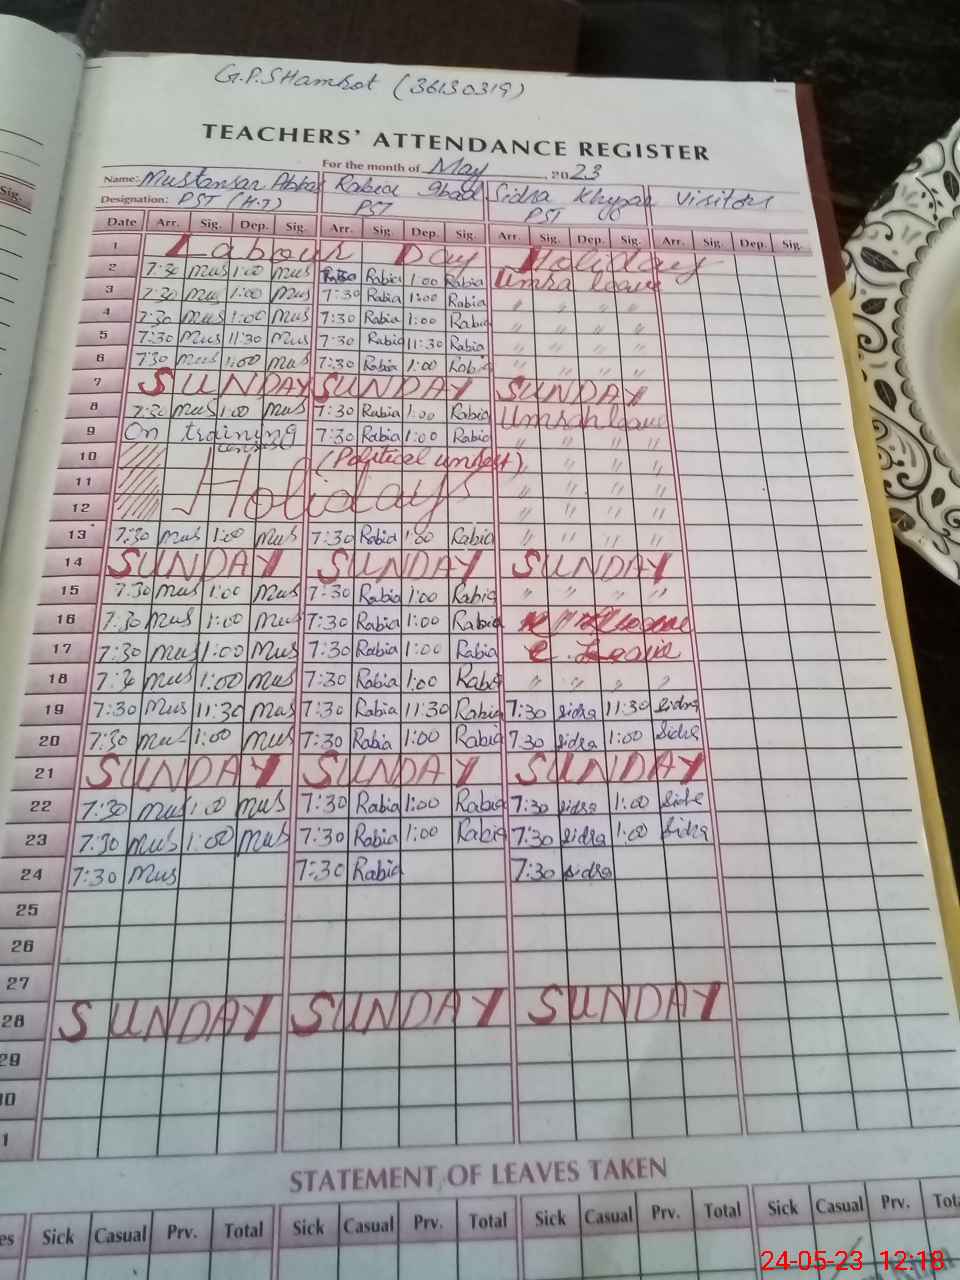 G.P.S Hamkot (36130319)
TEACHERS' ATTENDANCE REGISTER
For the month of May, 2023
Name: Mustansar Abbas Rabia Sidra Visitors
Designation: PST (H.T) PST PST
Sig.
Date Arr. Sig. Dep. Sig. Arr. Sig. Dep. Sig. Arr. Sig. Dep. Sig. Arr. Sig. Dep. Sig.
1 Labour Day Holiday
2 7:30 Mus 1:00 Mus 7:30 Rabia 1:00 Rabia Umra leave
3 7:30 Mus 1:00 Mus 7:30 Rabia 1:00 Rabia " " " "
4 7:30 Mus 1:00 Mus 7:30 Rabia 1:00 Rabia " " " "
5 7:30 Mus 11:30 Mus 7:30 Rabia 11:30 Rabia " " " "
6 7:30 Mus 1:00 Mus 7:30 Rabia 1:00 Rabia " " " "
7 SUNDAY SUNDAY SUNDAY
8 7:30 Mus 1:00 Mus 7:30 Rabia 1:00 Rabia Umrah leave
9 On training 7:30 Rabia 1:00 Rabia " " " "
10 (Political unrest) " " "
11 Holidays " " " "
12 " " " "
13 7:30 Mus 1:00 Mus 7:30 Rabia 1:00 Rabia " " " "
14 SUNDAY SUNDAY SUNDAY
15 7:30 Mus 1:00 Mus 7:30 Rabia 1:00 Rabia " " " "
16 7:30 Mus 1:00 Mus 7:30 Rabia 1:00 Rabia
17 7:30 Mus 1:00 Mus 7:30 Rabia 1:00 Rabia C. Leave
18 7:30 Mus 1:00 Mus 7:30 Rabia 1:00 Rabia " " " "
19 7:30 Mus 11:30 Mus 7:30 Rabia 11:30 Rabia 7:30 Sidra 11:30 Sidra
20 7:30 Mus 1:00 Mus 7:30 Rabia 1:00 Rabia 7:30 Sidra 1:00 Sidra
21 SUNDAY SUNDAY SUNDAY
22 7:30 Mus 1:00 Mus 7:30 Rabia 1:00 Rabia 7:30 Sidra 1:00 Sidra
23 7:30 Mus 1:00 Mus 7:30 Rabia 1:00 Rabia 7:30 Sidra 1:00 Sidra
24 7:30 Mus 7:30 Rabia 7:30 Sidra
25
26
27
28 SUNDAY SUNDAY SUNDAY
29
30
1
STATEMENT OF LEAVES TAKEN
es Sick Casual Prv. Total Sick Casual Prv. Total Sick Casual Prv. Total Sick Casual Prv. Tota
24-05-23 12:18